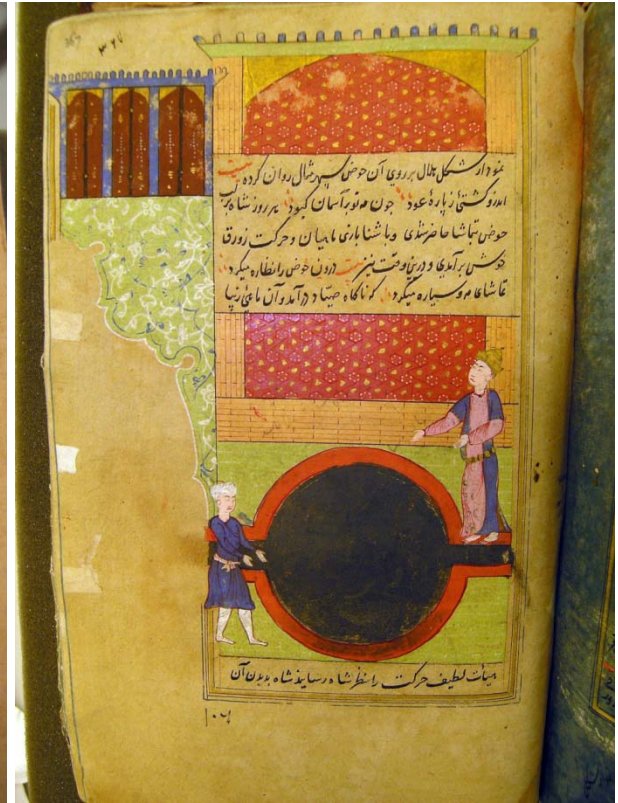 ۳۶۷
نمودار شکل هلال بر روی آن حوض سپهر مثال روان کرده بیت
اندرو کشتئ ز پارهٔ عود چون مه نو بر آسمان کبود هر روز شاه بر لب
حوض بتماشا حاضر شدی و با شنا بازی ماهیان و حرکت زورقا
دلش برآمدی و درین وقت نیز بیت درون حوض را نظاره میکرد
تماشای مه و سیاره میکرد که ناگاه صیاد درآمد و آن ماهئ زیبا
هیأت لطیف حرکت را بنظر شاه رسانید شاه بدیدن آن